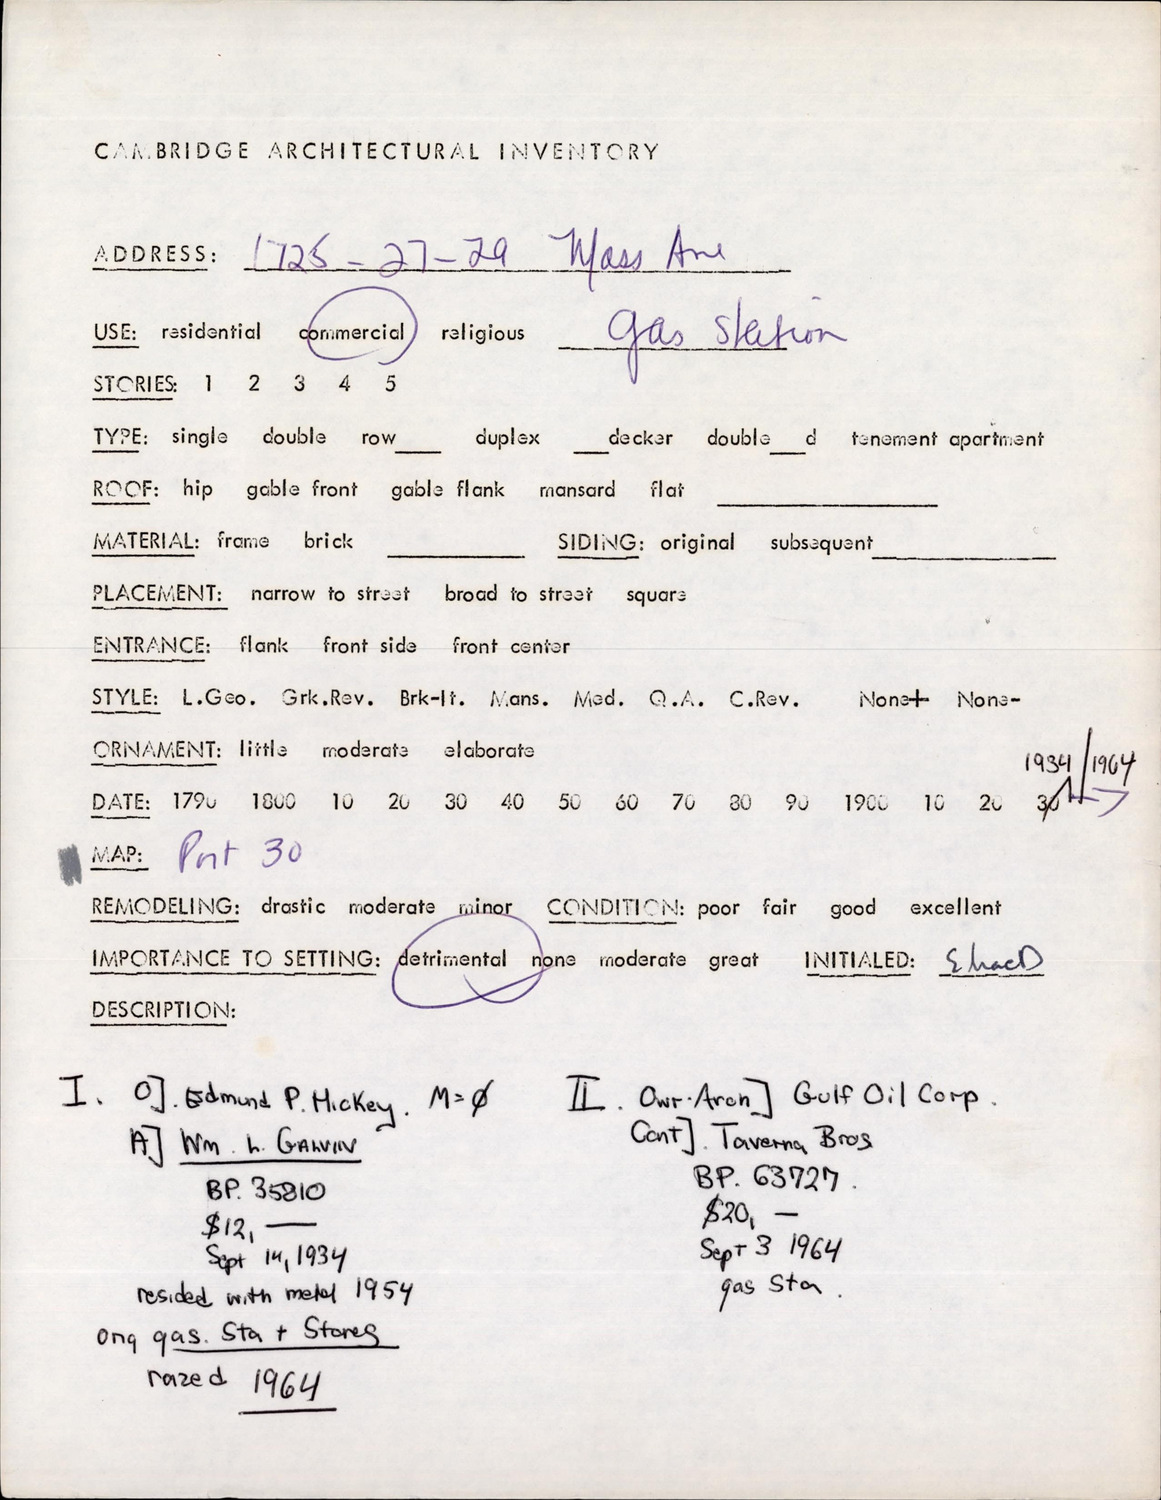 CAMBRIDGE ARCHITECTURAL INVENTORY
ADDRESS: 1725-27-29 Mass Ave
USE: residential commercial religious gas station
STORIES: 1 2 3 4 5
TYPE: single double row___ duplex ___decker double___d tenement apartment
ROOF: hip gable front gable flank mansard flat
MATERIAL: frame brick SIDING: original subsequent
PLACEMENT: narrow to street broad to street square
ENTRANCE: flank front side front center
STYLE: L.Geo. Grk.Rev. Brk-It. Mans. Med. Q.A. C.Rev. None+ None-
ORNAMENT: little moderate elaborate
1934/1964
DATE: 1790 1800 10 20 30 40 50 60 70 80 90 1900 10 20 30
MAP: Port 30
REMODELING: drastic moderate minor CONDITION: poor fair good excellent
IMPORTANCE TO SETTING: detrimental none moderate great INITIALED:
DESCRIPTION:
I. O]. Edmund P. Hickey. M=∅
A] Wm. L. GALVIN
BP. 35810
$12, —
Sept 14, 1934
resided with metal 1954
Orig gas. Sta + Stores
razed 1964
II. Owr-Arch] Gulf Oil Corp.
Cont]. Taverna Bros
BP. 63727.
$20, —
Sept 3 1964
gas Sta.